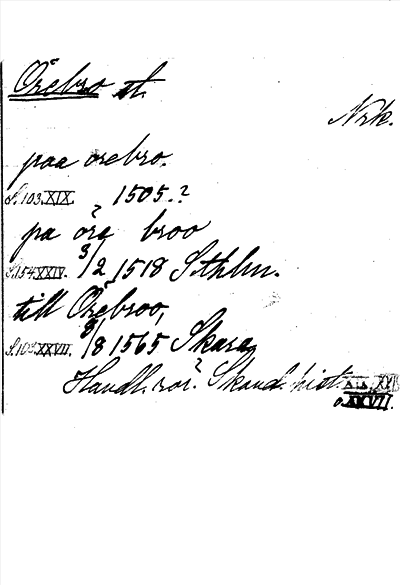 Örebro st.
Nrk.
paa orebro.
S. 103. XIX. 1505.?
pa öre broo
S. 154. XXIV. 3/2 1518 Sthlm.
till Örebroo,
XXVII. 8/8 1565 Skara
Handl. rör. Skand. hist. XIX,
o. XXVII.